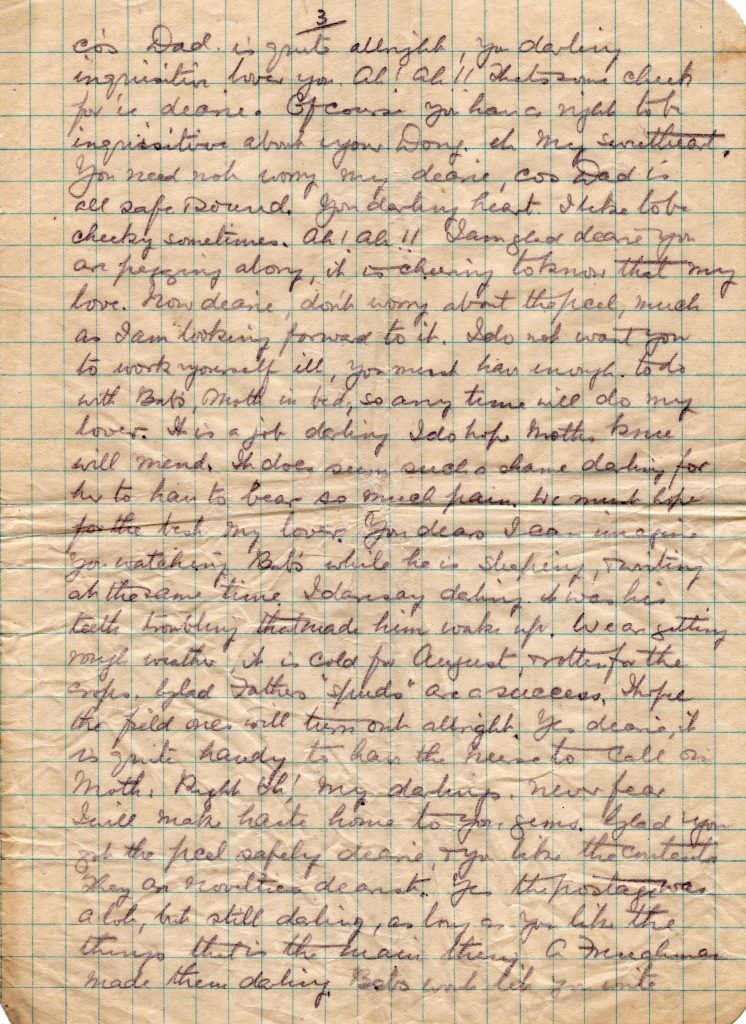 3
cos Dad is quite allright, you darling
inquisitive lover you. Ah! Ah!! Thats some cheek
for 'ee dearie. Of course you have a right to be
inquisitive about your Dong. eh my sweetheart.
You need not worry my dearie, cos Dad is
all safe & sound. You darling heart. I like to be
cheeky sometimes. Ah! Ah!! I am glad dearie you
are pegging along, it is cheering to know that my
love. Now dearie, don't worry about the pcel, much
as I am looking forward to it. I do not want you
to work yourself ill, you must have enough to do
with Babs, Moth in bed, so any time will do my
lover. It is a job darling I do hope Moths knee
will mend. It does seem such a shame darling for
her to have to bear so much pain. We must hope
for the best my lover. You dears I can imagine
you watching Babs while he is sleeping, & writing
at the same time. I daresay darling it was his
teeth troubling that made him wake up. We are getting
rough weather, it is cold for August, & rotten for the
crops. Glad Fathers "spuds" are a success. I hope
the field ones will turn out allright. Yes dearie, it
is quite handy to have the to call on
Moth. Right Oh! my darlings. never fear
I will make haste home to you gems. Glad you
got the pcel safely dearie, & you like the contents
They are novelties dearest. Yes the postage was
a lot, but still darling, as long as you like the
things that is the main thing. A Frenchman
made them darling. Babs wont let you write